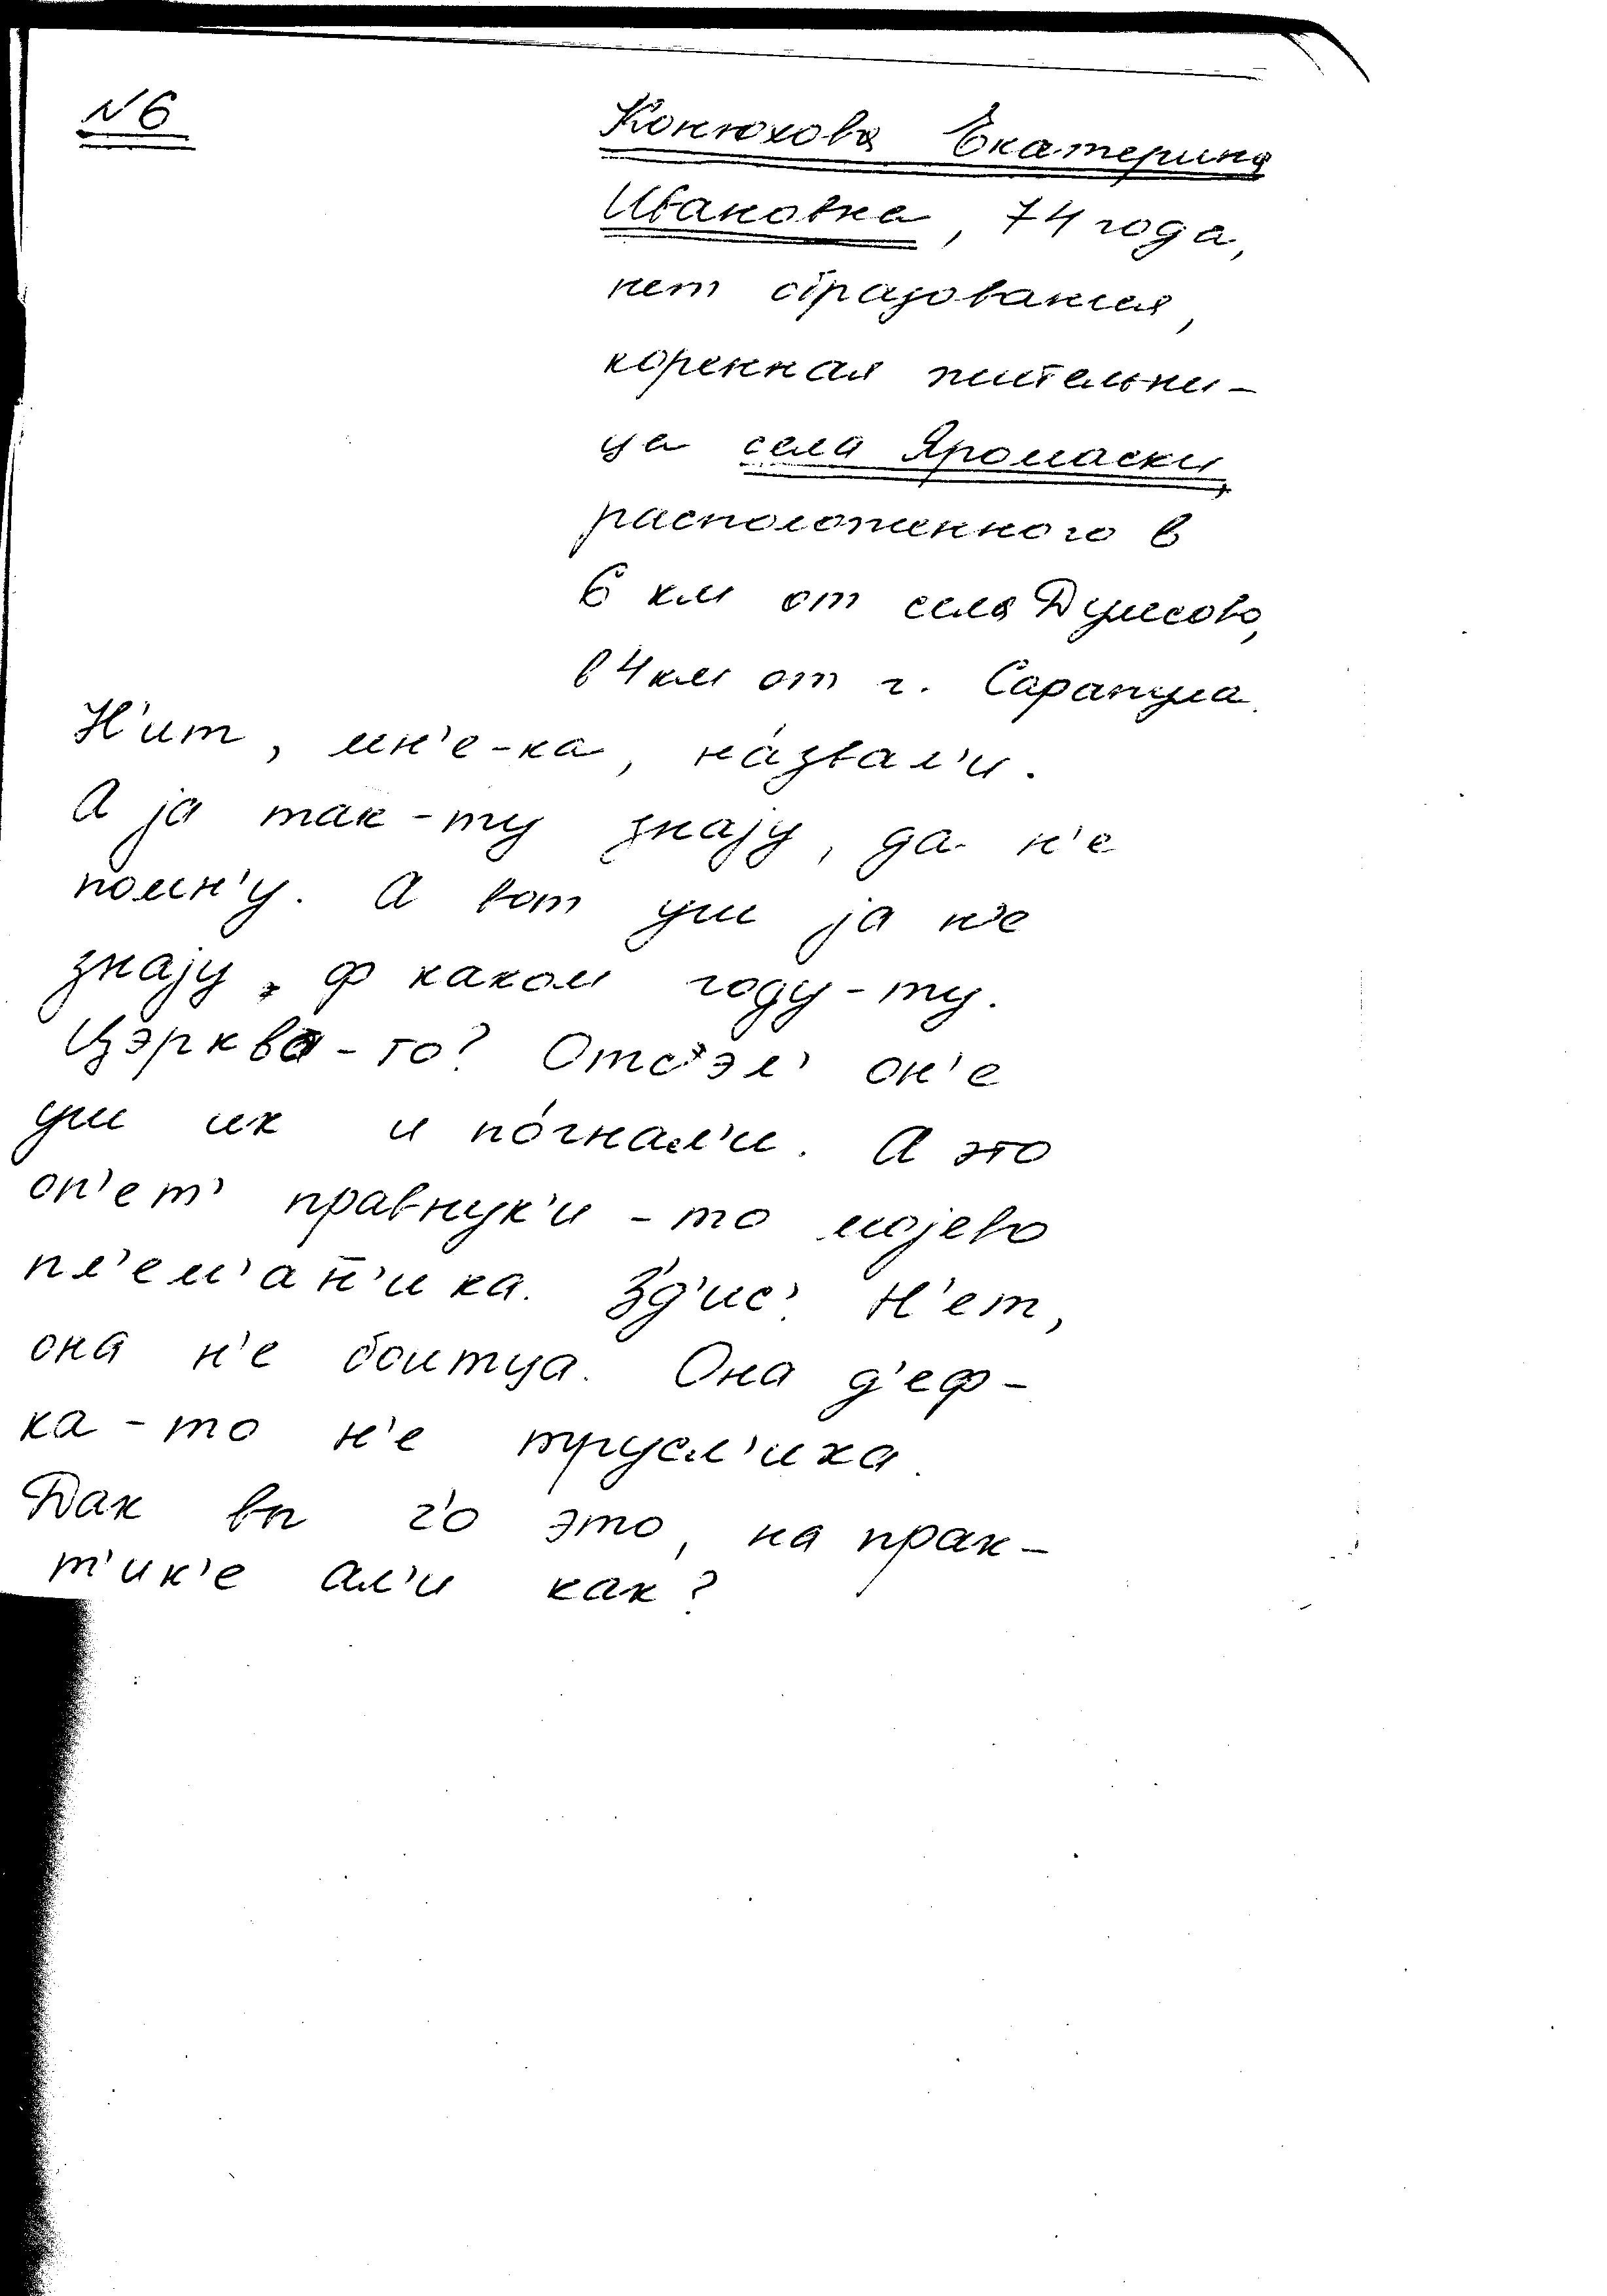 N6
Конюхова Екатерина
Ивановна, 74 года,
нет образования,
коренная жительни-
ца села Яромаски,
расположенного в
6 км от села Дулесово,
в 4 км от г. Сарапула.
Н'ит, мн'е-ка, на́звал'и.
А jа так-ту знаjу, да н'е
помн'у. А вот уш jа н'е
знаjу, ф каком году-ту.
Цэрква-то? Отс'эл' он'е
уш их и по́гнал'и. А это
оп'ет' правнук'и-то моjево
пл'ем'ан̄'ика. З'д'ис'. Н'ет,
она н'е боитца. Она д'еф-
ка-то н'е трусл'иха.
Дак вы г'о это, на прак-
т'ик'е ал'и как?